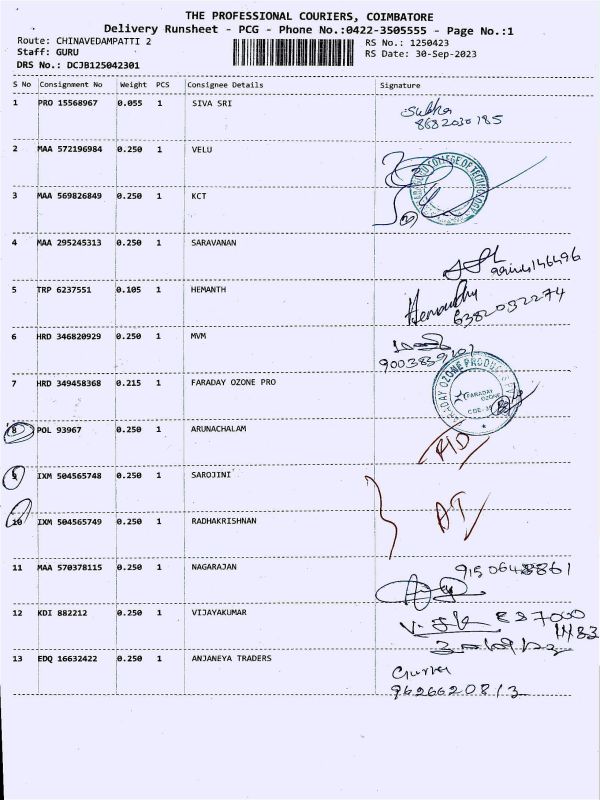 THE PROFESSIONAL COURIERS, COIMBATORE
Delivery Runsheet - PCG - Phone No.:0422-3505555 - Page No.:1
Route: CHINAVEDAMPATTI 2
RS No.: 1250423
Staff: GURU
RS Date: 30-Sep-2023
DRS No.: DCJB125042301
S No Consignment No Weight PCS Consignee Details Signature
1 PRO 15568967 0.055 1 SIVA SRI
8682030185
2 MAA 572196984 0.250 1 VELU
COLLEGE OF TECHNOLOGY
3 MAA 569826849 0.250 1 KCT
4 MAA 295245313 0.250 1 SARAVANAN
5 TRP 6237551 0.105 1 HEMANTH
6382032274
6 HRD 346820929 0.250 1 MVM
7 HRD 349458368 0.215 1 FARADAY OZONE PRO
FARADAY OZONE PRODUCTS
FARADAY
OZONE
8 POL 93967 0.250 1 ARUNACHALAM
9 IXM 504565748 0.250 1 SAROJINI
10 IXM 504565749 0.250 1 RADHAKRISHNAN
11 MAA 570378115 0.250 1 NAGARAJAN
12 KDI 882212 0.250 1 VIJAYAKUMAR
13 EDQ 16632422 0.250 1 ANJANEYA TRADERS
9626620813